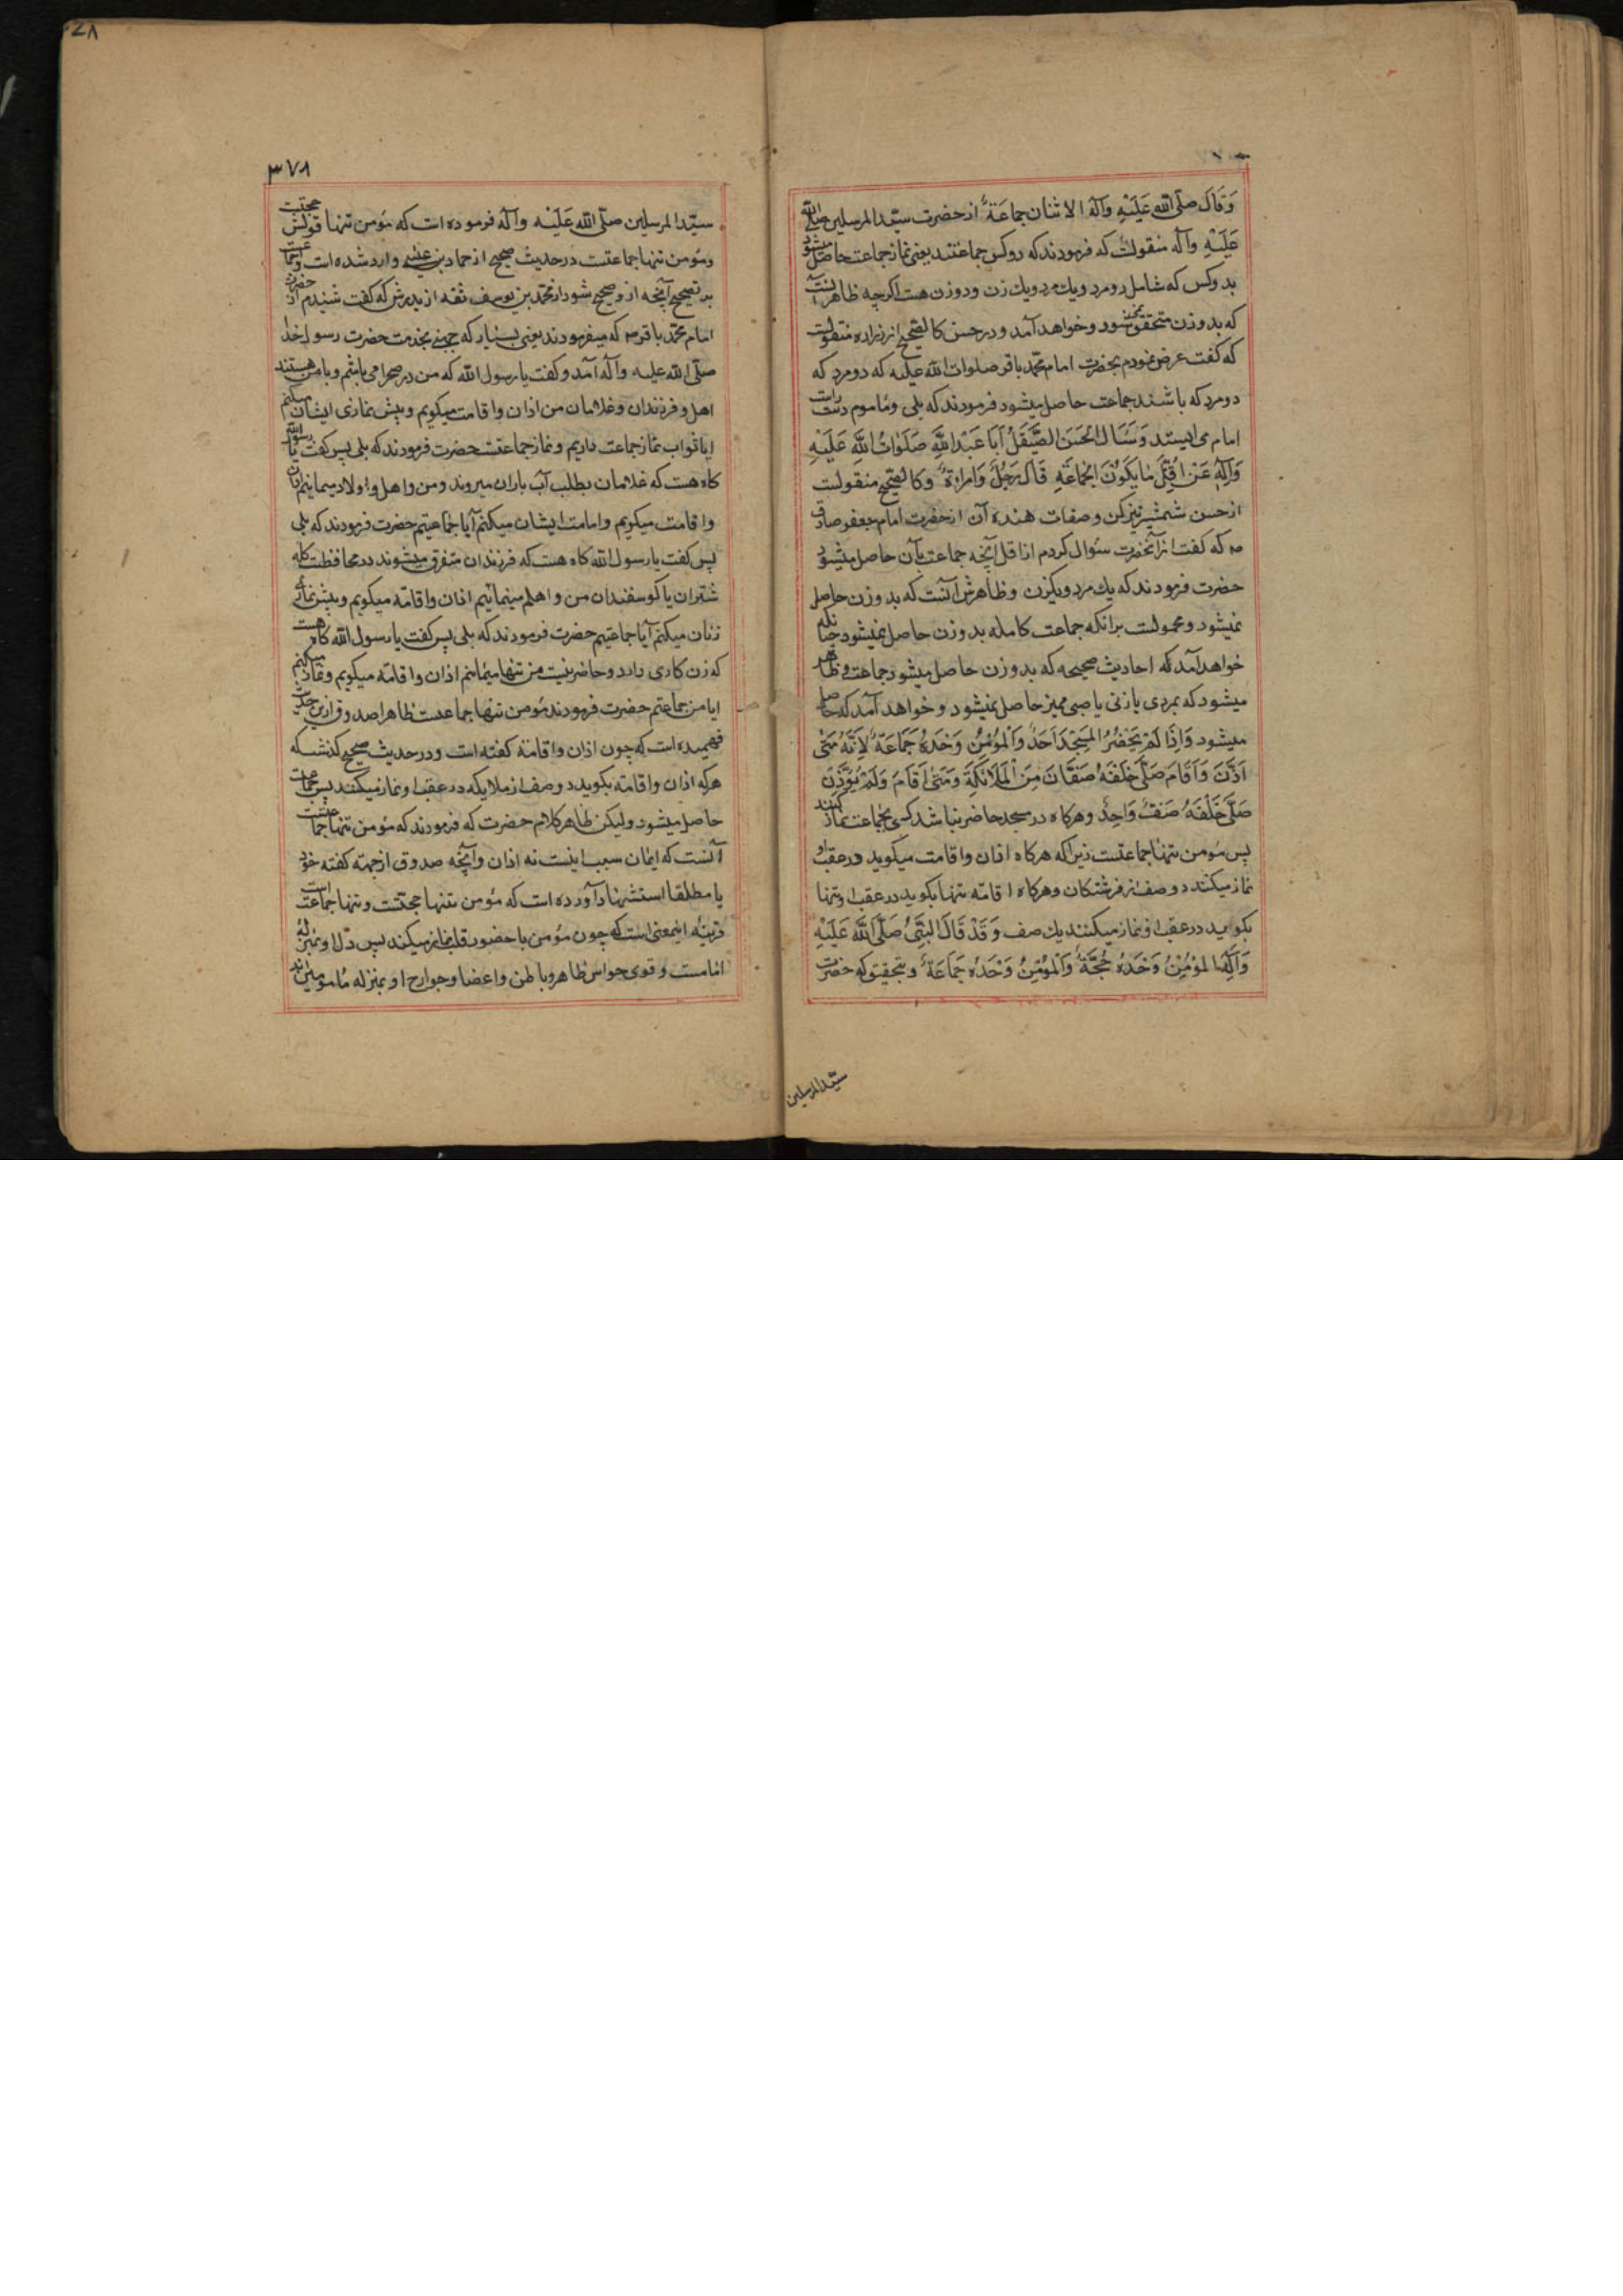 وَقَالَ صلّی الله عَلَیْهِ وَآلِهِ الاثنان جماعَةٌ از حضرت سیّد المرسلین صلی الله
عَلَیْهِ وآله منقولست که فرمودند که دو کس جماعتند یعنی نماز جماعت حاصل میشود
بدو کس که شامل دو مرد و یك مرد و یك زن و دو زن هست اکرچه ظاهر آنست
که بدو زن متحقق نمیشود و خواهد آمد و در حسن کالصحیح از زراره منقولست
که کفت عرض نمودم بحضرت امام محمّد باقر صلوات الله علیه که دو مرد که
دو مرد که باشند جماعت حاصل میشود فرمودند که بلی و مأموم دست راست
امام می ایستد وَسَئَالَ الْحَسَنَ الصَّیْقَلُ اَبَا عَبْدِ اللَّهِ صَلَوَاتُ اللَّهِ عَلَیْهِ
وَآلِهِ عَنْ اَقَلِّ مَا یَکُونُ الجَمَاعَةِ قَالَ رَجُلٌ وَامْرَاَةٌ وکالصحیح منقولست
از حسن شمشیر تیز کن و صفات هنده آن از حضرت امام جعفر صادق
ص که کفت از آنحضرت سئوال کردم از اقل آنچه جماعت بآن حاصل میشود
حضرت فرمودند که یك مرد و یکزن و ظاهرش آنست که بدو زن حاصل
نمیشود و محمولست برانکه جماعت کامله بدو زن حاصل نمیشود چنانکه
خواهد آمد که احادیث صحیحه که بدو زن حاصل میشود جماعت و ظاهر
میشود که بمردی یا زنی یا صبی ممیز حاصل نمیشود و خواهد آمد که حاصل
میشود وَاِذَا لَمْ یَحْضُرُ المَسْجِدَ اَحَدٌ وَالْمُؤْمِنُ وَحْدَهُ جَمَاعَةٌ لِاَنَّهُ مَتَی
اَذَّنَ وَاَقَامَ صَلَّی خَلْفَهُ صَفَّانِ مِنَ الْمَلَائِکَةِ وَمَتَی اَقَامَ وَلَمْ یُؤَذِّنْ
صَلَّی خَلْفَهُ صَفٌّ وَاحِدٌ وهرکاه در مسجد حاضر نباشد کسی بجماعت نماز کنند
پس مؤمن تنها جماعتست زیرا که هرکاه اذان و اقامت میکوید در عقب او
نماز میکنند دو صف از فرشتکان وهرکاه اقامه تنها بکوید در عقب او تنها
بکوید در عقب او نماز میکنند یك صف وَقَدْ قَالَ النَّبِیُّ صَلَّی اللَّهُ عَلَیْهِ
وَآلِهِ المُؤْمِنُ وَحْدَهُ حُجَّةٌ وَالْمُؤْمِنُ وَحْدَهُ جَمَاعَةٌ و بتحقیق که حضرت
سیّد المرسلین
۳۷۸
سیّد المرسلین صلّی الله عَلَیْه وآله فرموده است که مؤمن تنها قولش حجتست
ومؤمن تنها جماعتست در حدیث صحیح از حماد بن عیسی وارد شده است
بر تصحیح آنچه از و صحیح شود از محمّد بن یوسف ثقه از پدرش که کفت شنیدم از حضرت
امام محمّد باقر ص که میفرمودند یعنی بسیار که جهنی بخدمت حضرت رسول خدا
صلّی الله علیه وآله آمد و کفت یا رسول الله که من در صحرا می باشم و با من هستند
اهل و فرزندان و غلامان من اذان و اقامت میکویم و پیش نمازی ایشان میکنم
ایا ثواب نماز جماعت داریم و نماز جماعتست حضرت فرمودند که بلی پس کفت یا رسول الله
کاه هست که غلامان بطلب آب باران میروند و من و اهل و اولاد میمانیم اذان
و اقامت میکویم و امامت ایشان میکنم آیا جماعتیم حضرت فرمودند که بلی
پس کفت یا رسول الله کاه هست که فرزندان متفرق میشوند در محافظت کله
شتران یا کوسفندان من و اهلم میمانیم اذان و اقامه میکویم و پیش نمازی
زنان میکنم آیا جماعتیم حضرت فرمودند که بلی پس کفت یا رسول الله کاه هست
که زن کاری دارد و حاضر نیست من تنها میمانم اذان و اقامه میکویم و نماز میکنم
ایا من جماعتم حضرت فرمودند مؤمن تنها جماعتست ظاهرا صدوق ازین حدیث
فهمیده است که چون اذان و اقامة کفته است و در حدیث صحیح کذشت که
هرکه اذان و اقامه بکوید دو صف از ملایکه در عقب او نماز میکنند پس جماعت
حاصل میشود ولیکن ظاهر کلام حضرت که فرمودند که مؤمن تنها جماعتست
آنست که ایمان سبب اینست نه اذان و آنچه صدوق از جهة کفته خود
یا مطلقا استشهاد آورده است که مؤمن تنها حجتست و تنها جماعت است
قرینه اینمعنی است که چون مؤمن با حضور قلب نماز میکند پس دل او بمنزله
امامست و قوی حواس ظاهر و باطن و اعضا و جوارح او بمنزله مأمومین اند